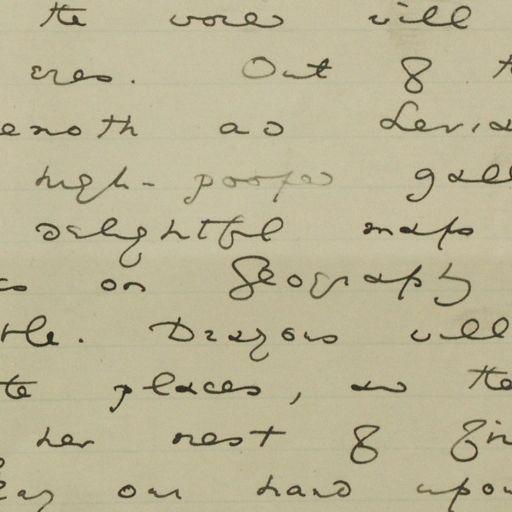 the world will
eyes. Out of t
emoth and Levia
high-pooped gall
delightful maps
s on geography
ble. Dragons will
te places, and the
her nest of fir
lay our hand upon